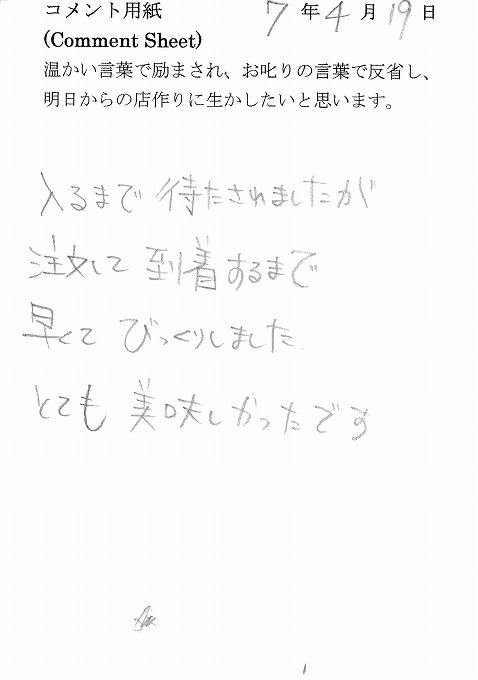 コメント用紙 7年4月19日
(Comment Sheet)
温かい言葉で励まされ、お叱りの言葉で反省し、
明日からの店作りに生かしたいと思います。
入るまで 待たされましたが
注文して 到着するまで
早くて びっくりしました
とても 美味しかったです